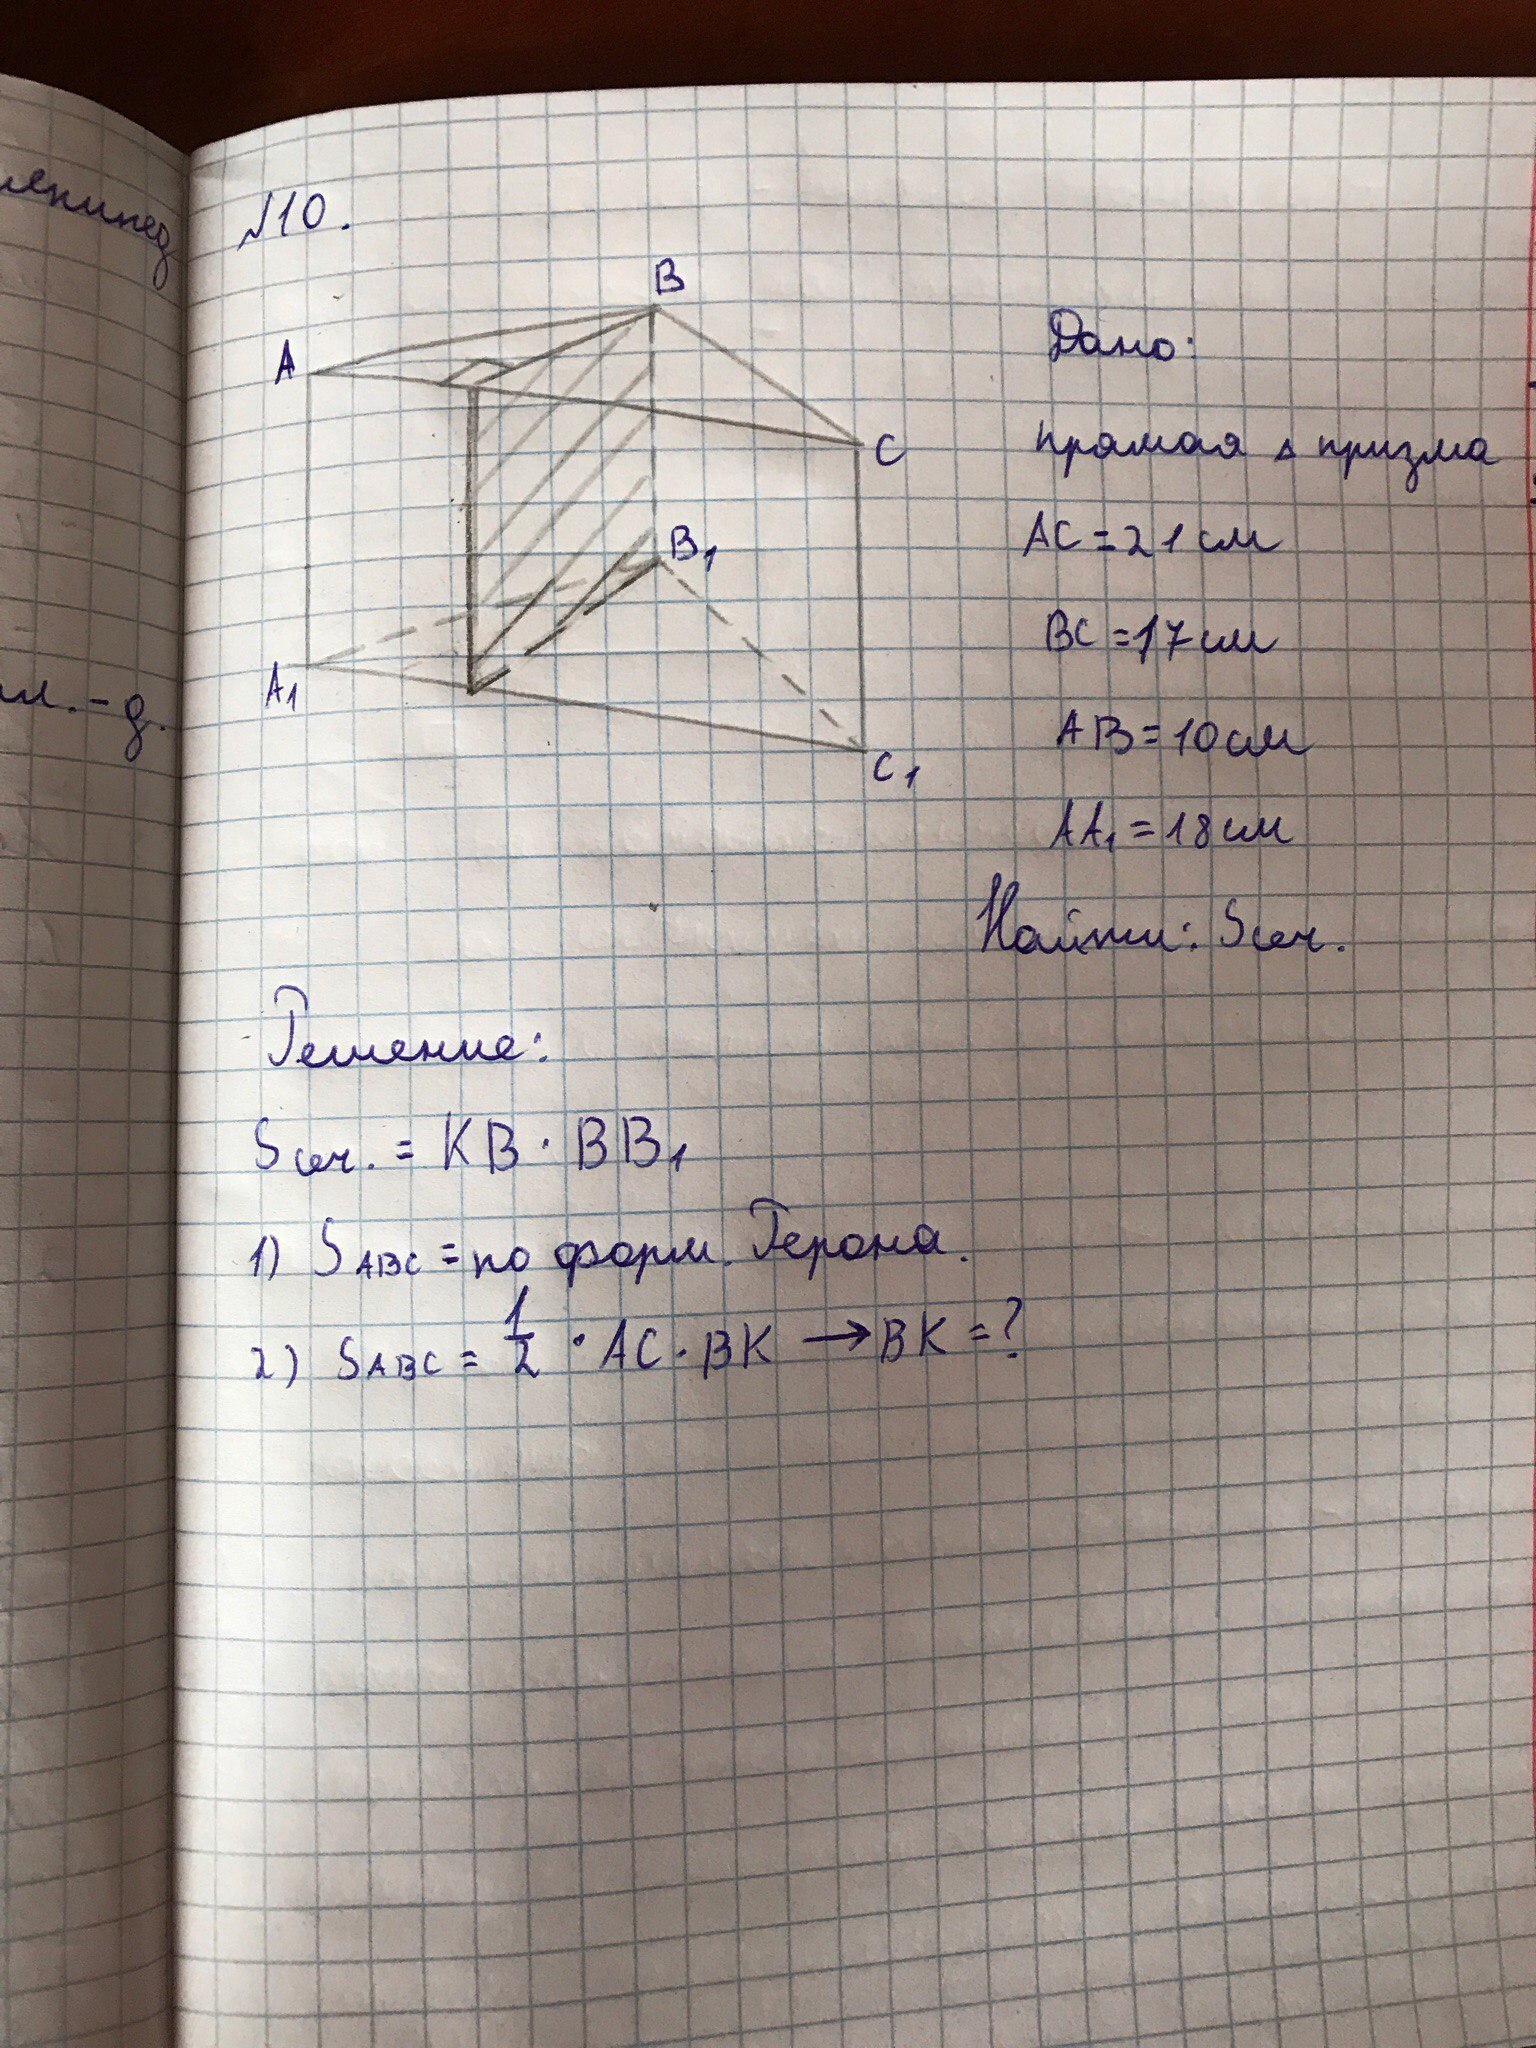 №10.
B
A
C
B₁
A₁
C₁
Дано:
прямая △ призма
AC = 21 см
BC = 17 см
AB = 10 см
AA₁ = 18 см
Найти: Sсеч.
Решение:
Sсеч. = KB · BB₁
1) SABC = по форм. Герона.
2) SABC = 1/2 · AC · BK → BK = ?